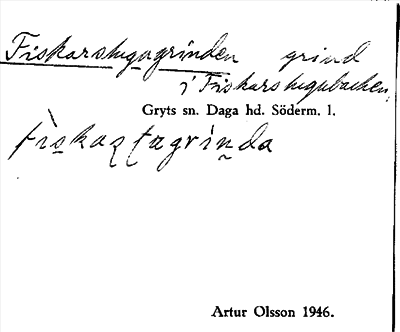 Fiskarstugagrinden grind
i Fiskarstugubacken,
Gryts sn. Daga hd. Söderm. l.
Artur Olsson 1946.